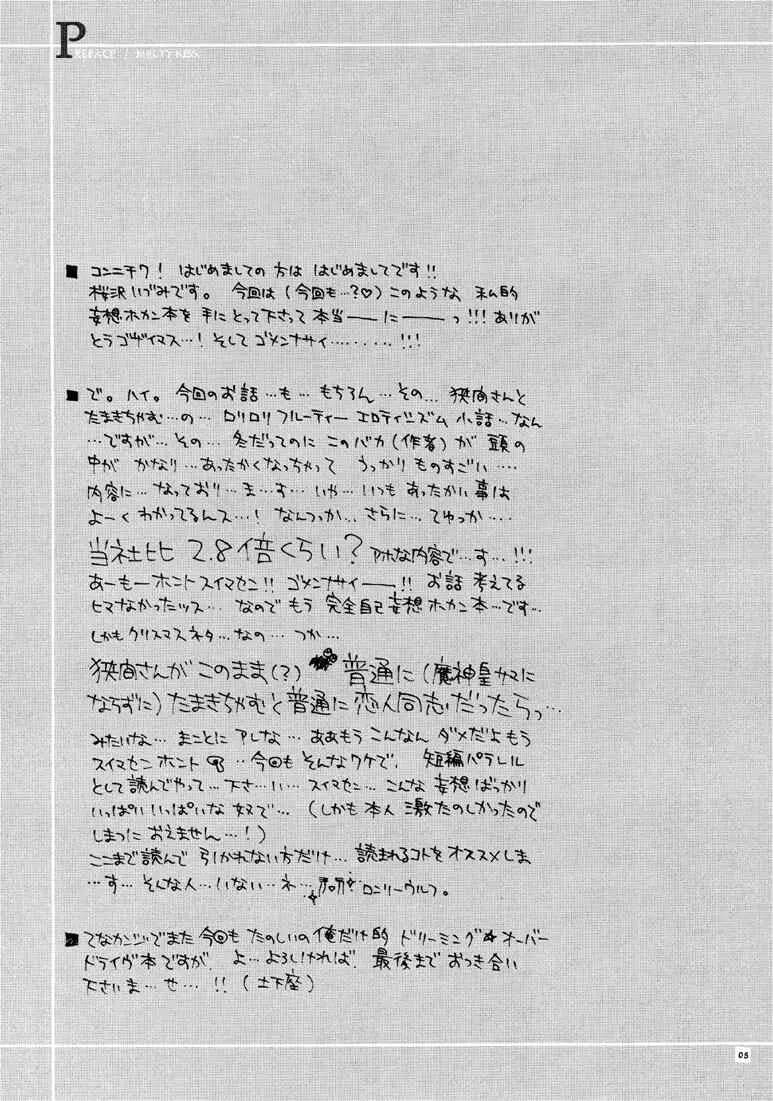 PREFACE / MELTY KISS
■ コンニチワ! はじめましての方は はじめましてです!!
桜沢いづみです。 今回は(今回も…?♡)このような 私的
妄想ホカン本を 手にとって下さって本当――に――っ!!! ありが
とうゴザイマス…! そして ゴメンナサイ………!!!
■ で。ハイ。今回のお話…も…もちろん…その… 狭間さんと
たまきちゃむ…の… ロリロリ フルーティー エロティシズム 小話…なん
…ですが… その… 冬だってのに このバカ(作者)が 頭の
中が かなり…あったかくなっちゃって うっかり ものすごい…
内容に…なっており…ま…す… いや… いつも あったかい事は
よーく わかってるんス…! なんつっか… さらに… てゆっか…
当社比 2.8倍くらい? アホな内容で…す…!!!
あーもーホント スイマセン!! ゴメンナサイ――!! お話 考えてる
ヒマなかったッス… なので もう 完全自己妄想ホカン本…です…
しかも クリスマスネタ…なの… つか…
狭間さんが このまま(?) 普通に(魔神皇サマに
ならずに)たまきちゃむと普通に恋人同志だったらっ…
みたいな… まことに アレな… ああもう こんなん ダメだよ もう
スイマセン ホント … 今回も そんなワケで、 短編パラレル
として読んでやって…下さ…い… スイマセン… こんな 妄想ばっかり
いっぱい いっぱいな 奴で… (しかも 本人 激たのしかったので
しまつに おえません…!)
ここまで読んで 引かれない方だけ… 読まれるコトを オススメしま
…す… そんな人…いない…ネ… ロンリーウルフ。
■ てなカンジでまた 今回も たのしいの俺だけ的 ドリーミング★オーバー
ドライヴ本ですが、 よ…よろしければ、最後まで おつき合い
下さいま…せ…!! (土下座)
05